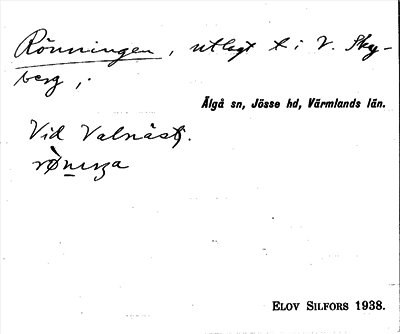 Rönningen, utlagt t. i V. Sky-
berg,.
Älgå sn, Jösse hd, Värmlands län.
Vid Valnäst.
ELOV SILFORS 1938.